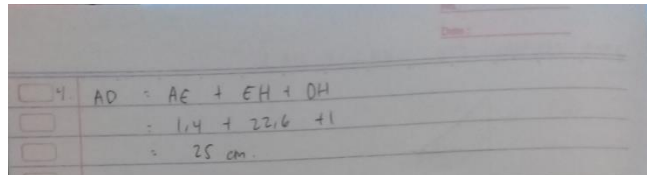 Date :
4. AD = AE + EH + DH
= 1,4 + 22,6 + 1
= 25 cm.